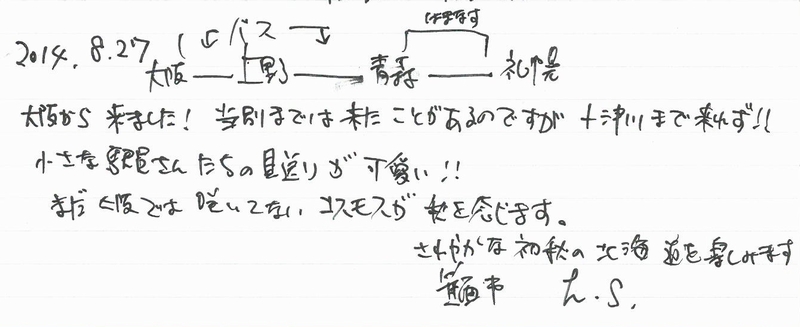 はまなす
2014. 8.27 バス
大阪 — 上野 — 青森 — 札幌
大阪から 来ました! 当別までは来たことがあるのですが 十津川まで来れず!!
小さな駅長さんたちの見送りが可愛い!!
まだ大阪では咲いてないコスモスが 秋を感じます。
さわやかな初秋の北海道を楽しみます
箕面市 h.S.